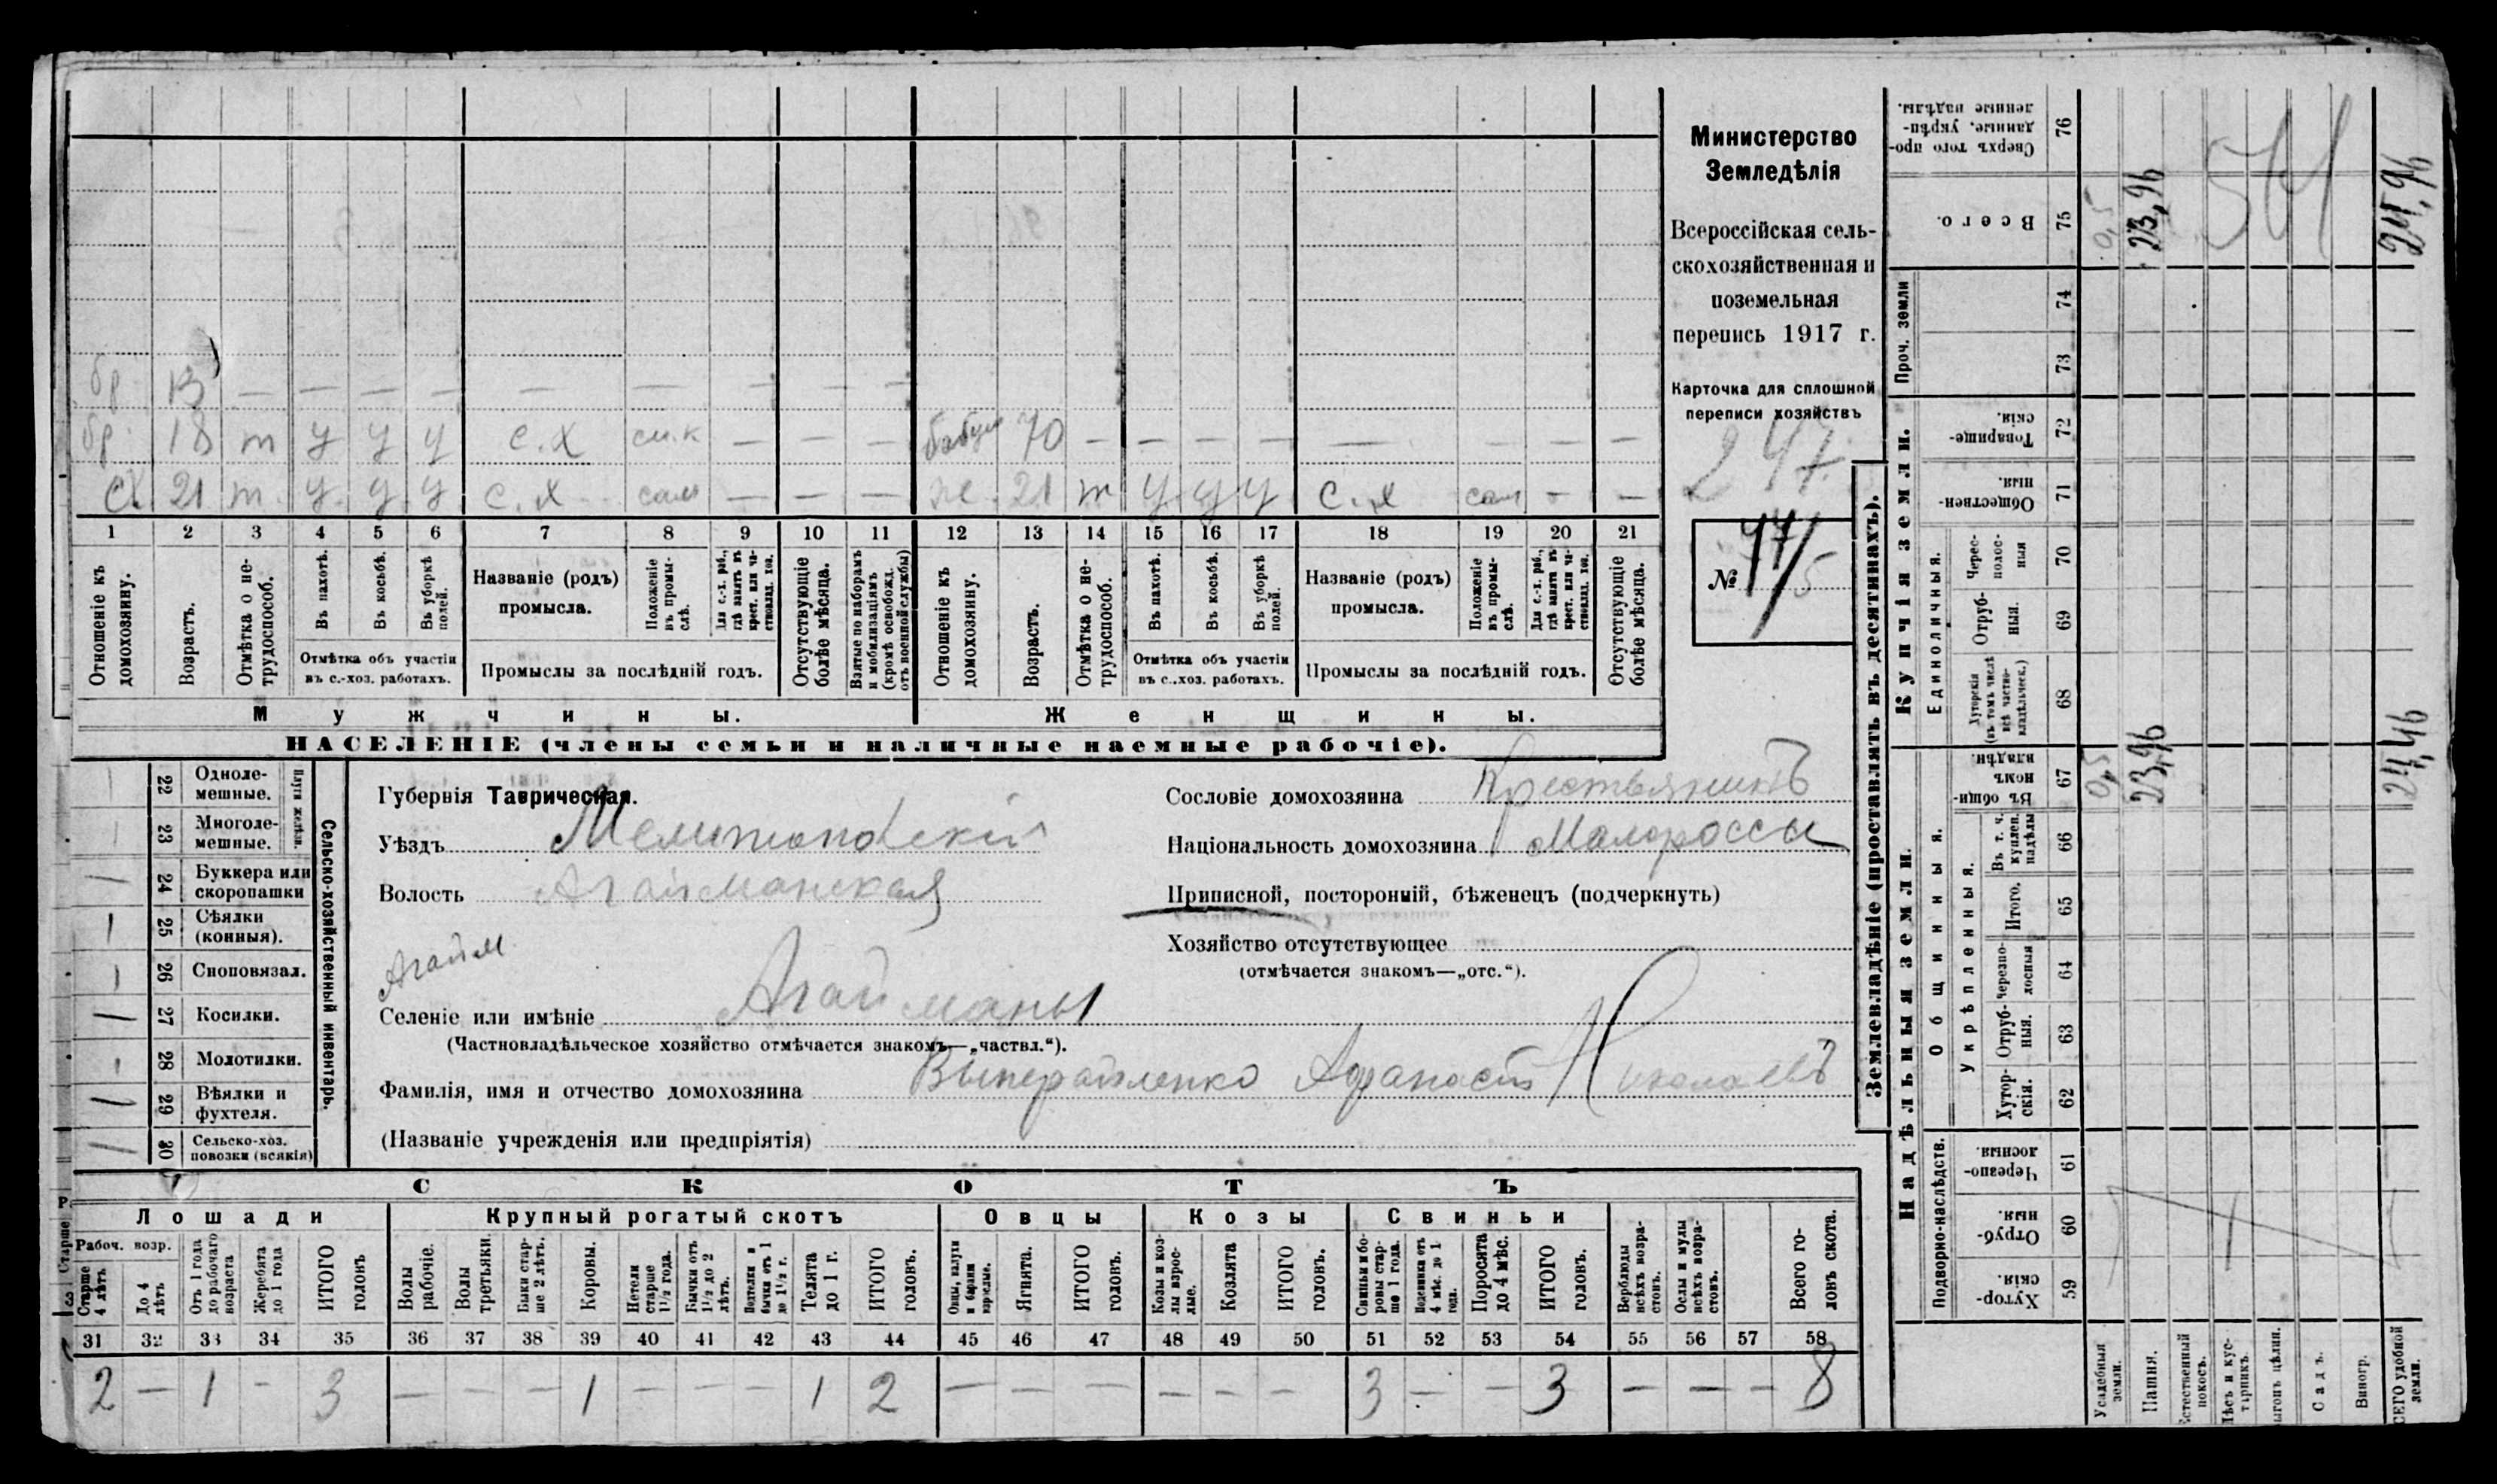 бр 13 — — — — — — — — —
бр. 18 т у у у с.х — — — 70 — — — — — — — —
сх. 21 т. у. у у с.х сам — — — ж. 21 т у у у с.х сам — —
1 2 3 4 5 6 7 8 9 10 11 12 13 14 15 16 17 18 19 20 21
Отношеніе къ домохозяину.
Возрастъ.
Отмѣтка о нетрудоспособ.
Въ пахотѣ.
Въ косьбѣ.
Въ уборкѣ полей.
Отмѣтка объ участіи
въ с.-хоз. работахъ.
Названіе (родъ)
промысла.
Положеніе въ промыслѣ.
Для с.-х. раб., гдѣ занятъ въ крест. или частновлад. хоз.
Промыслы за послѣдній годъ.
Отсутствующіе болѣе мѣсяца.
Взятые по наборамъ и мобилизаціямъ (кромѣ освобожд. отъ военной службы)
Отношеніе къ домохозяину.
Возрастъ.
Отмѣтка о нетрудоспособ.
Въ пахотѣ.
Въ косьбѣ.
Въ уборкѣ полей.
Отмѣтка объ участіи
въ с.-хоз. работахъ.
Названіе (родъ)
промысла.
Положеніе въ промыслѣ.
Для с.-х. раб., гдѣ занята въ крест. или частновлад. хоз.
Промыслы за послѣдній годъ.
Отсутствующіе болѣе мѣсяца.
Мужчины.
Женщины.
НАСЕЛЕНІЕ (члены семьи и наличные наемные рабочіе).
Министерство
Земледѣлія
Всероссійская сель-
скохозяйственная и
поземельная
перепись 1917 г.
Карточка для сплошной
переписи хозяйствъ
247
№
Сельско-хозяйственный инвентарь.
Плуги желѣзн.
22 Одноле-
мешные.
23 Многоле-
мешные.
24 Буккера или
скоропашки
25 Сѣялки
(конныя).
26 Сноповязал.
27 Косилки.
28 Молотилки.
29 Вѣялки и
фухтеля.
30 Сельско-хоз.
повозки (всякія)
Губернія Таврическая.
Уѣздъ Мелитопольскій
Волость Агайманская
Агайм
Селеніе или имѣніе Агайманы
(Частновладѣльческое хозяйство отмѣчается знакомъ—„частвл.“).
Фамилія, имя и отчество домохозяина Афанасій Николаевъ
(Названіе учрежденія или предпріятія)
Сословіе домохозяина Крестьянинъ
Національность домохозяина Малороссы
Приписной, посторонній, бѣженецъ (подчеркнуть)
Хозяйство отсутствующее
(отмѣчается знакомъ—„отс.“).
СКОТЪ
Лошади
Крупный рогатый скотъ
Овцы
Козы
Свиньи
Рабоч. возр.
Старше 4 лѣтъ
До 4 лѣтъ
Отъ 1 года до рабочаго возраста
Жеребята до 1 года
ИТОГО головъ
Волы рабочіе.
Волы третьяки.
Быки старше 2 лѣтъ.
Коровы.
Нетели старше 1½ года.
Бычки отъ 1½ до 2 лѣтъ.
Подтелки и бычки отъ 1 до 1½ г.
Телята до 1 г.
ИТОГО головъ.
Овцы, валухи и бараны взрослые.
Ягнята.
ИТОГО головъ.
Козы и козлы взрослые.
Козлята
ИТОГО головъ.
Свиньи и боровы старше 1 года.
Подсвинки отъ 4 мѣс. до 1 года.
Поросята до 4 мѣс.
ИТОГО головъ.
Верблюды всѣхъ возрастовъ.
Ослы и мулы всѣхъ возрастовъ.
Всего головъ скота.
31 32 33 34 35 36 37 38 39 40 41 42 43 44 45 46 47 48 49 50 51 52 53 54 55 56 57 58
2 — 1 - 3 — — — 1 — — — 1 2 — — — — — — 3 — — 3 — — — 8
Землевладѣніе (проставлять въ десятинахъ).
Надѣльныя земли.
Купчія земли.
Проч. земли
Подворно-наслѣдств.
Общинныя.
Укрѣпленныя.
Единоличныя.
59 Хутор-
скія.
60 Отруб-
ныя.
61 Черезпо-
лосныя.
62 Хутор-
скія.
63 Отруб-
ныя.
64 Черезпо-
лосныя
65 Итого.
66 Въ т. ч.
куплен.
надѣлы
67 Въ общи-
номъ
владѣн.
68 Хуторскія
(въ томъ числѣ
всѣ частно-
владѣльческ.)
69 Отруб-
ныя.
70 Черес-
полос-
ныя
71 Обществен-
ныя.
72 Товарище-
скія.
73
74
75 Всего.
76 Сверхъ того про-
данные, укрѣп-
ленные надѣлы.
Усадебныя земли. 0,5 0,5
Пашня. 23,96 23,96
Естественный покосъ.
Лѣсъ и кус-
тарникъ.
Выгонъ цѣлин.
Садъ.
Виногр.
ВСЕГО удобной земли. 24,46